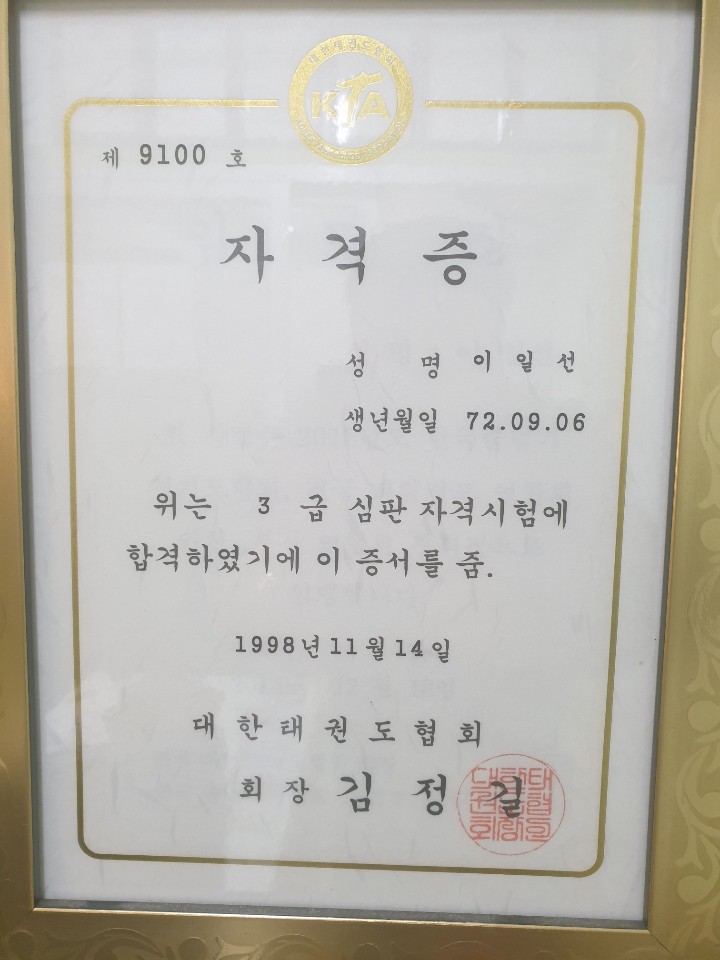 KTA
제 9100 호
자 격 증
성 명 이 일 선
생년월일 72.09.06
위는 3 급 심판 자격시험에
합격하였기에 이 증서를 줌.
1998년 11월 14일
대 한 태 권 도 협 회
회 장 김 정 길